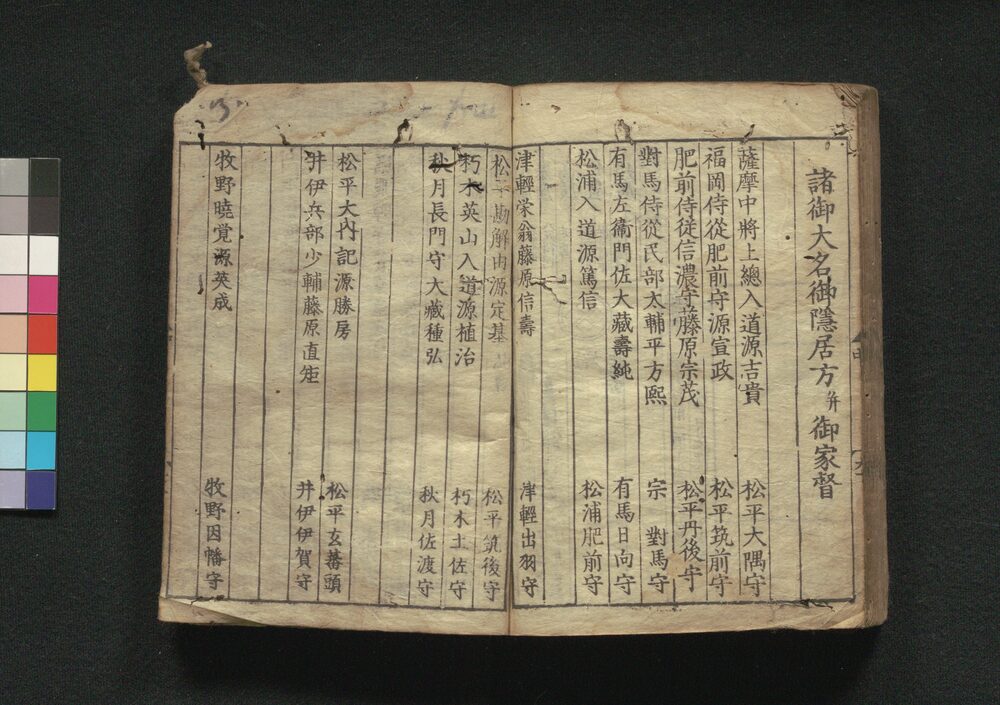 諸御大名御隠居方并御家督
薩摩中將上總入道源吉貴 松平大隅守
福岡侍從肥前守源宣政 松平筑前守
肥前侍従信濃守藤原宗茂 松平丹後守
對馬侍從民部太輔平方熙 宗對馬守
有馬左衞門佐大藏壽純 有馬日向守
松浦入道源篤信 松浦肥前守
津輕栄翁藤原信壽 津輕出羽守
松平勘解由源定基 松平筑後守
朽木英山入道源植治 朽木土佐守
秋月長門守大藏種弘 秋月佐渡守
松平大内記源勝房 松平玄蕃頭
井伊兵部少輔藤原直矩 井伊伊賀守
牧野曉覚源英成 牧野因幡守